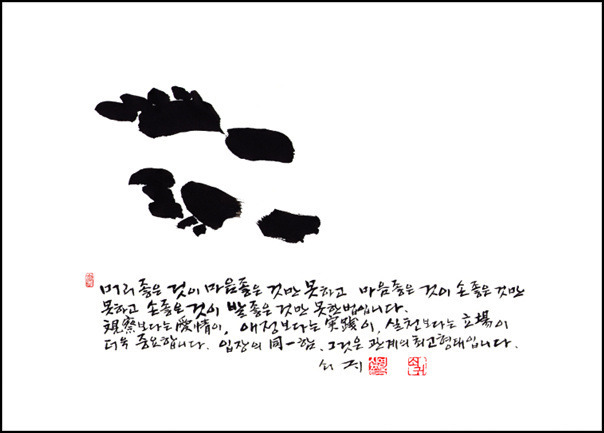 머리 좋은 것이 마음좋은 것만 못하고 마음좋은 것이 손좋은 것만
못하고 손좋은 것이 발좋은 것만 못한법입니다.
觀察보다는 愛情이, 애정보다는 実践이, 실천보다는 立場이
더욱 중요합니다. 입장의 同一함. 그것은 관계의 최고형태입니다.